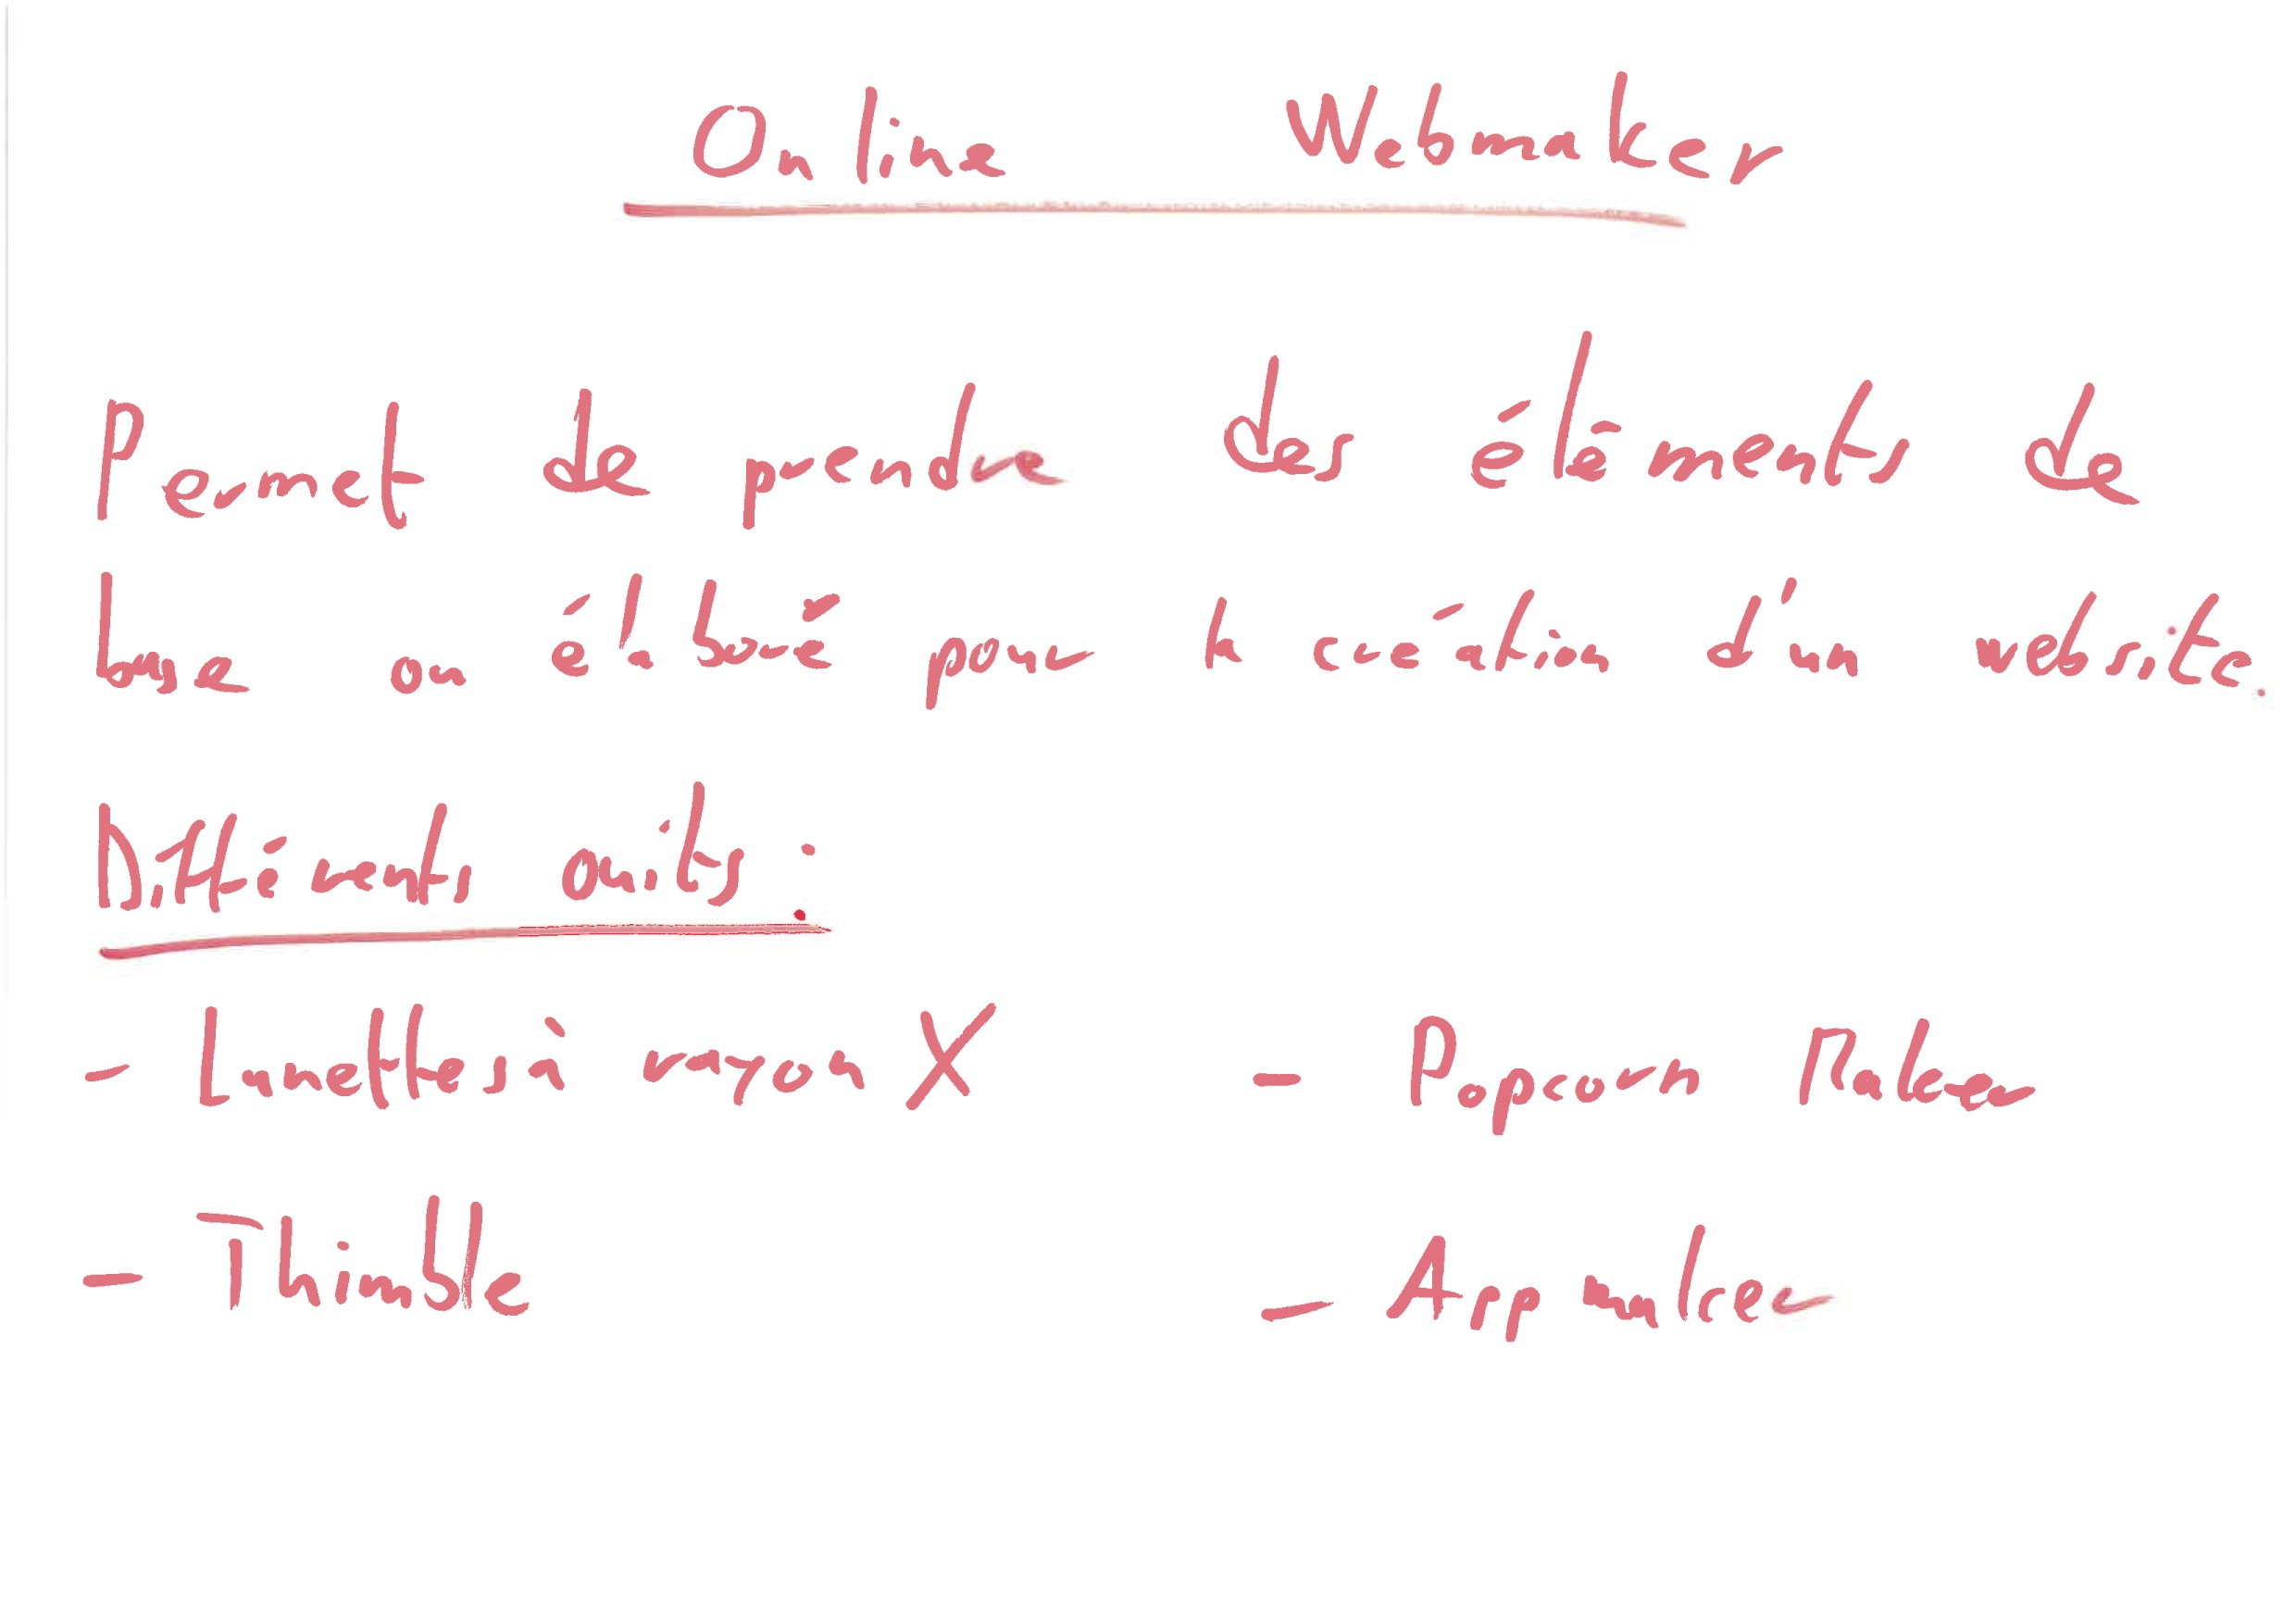 Online Webmaker
Permet de prendre des éléments de
base ou élaboré pour la création d'un website.
Différents outils :
- Lunettes à rayon X
- Popcorn Maker
- Thimble
- App maker